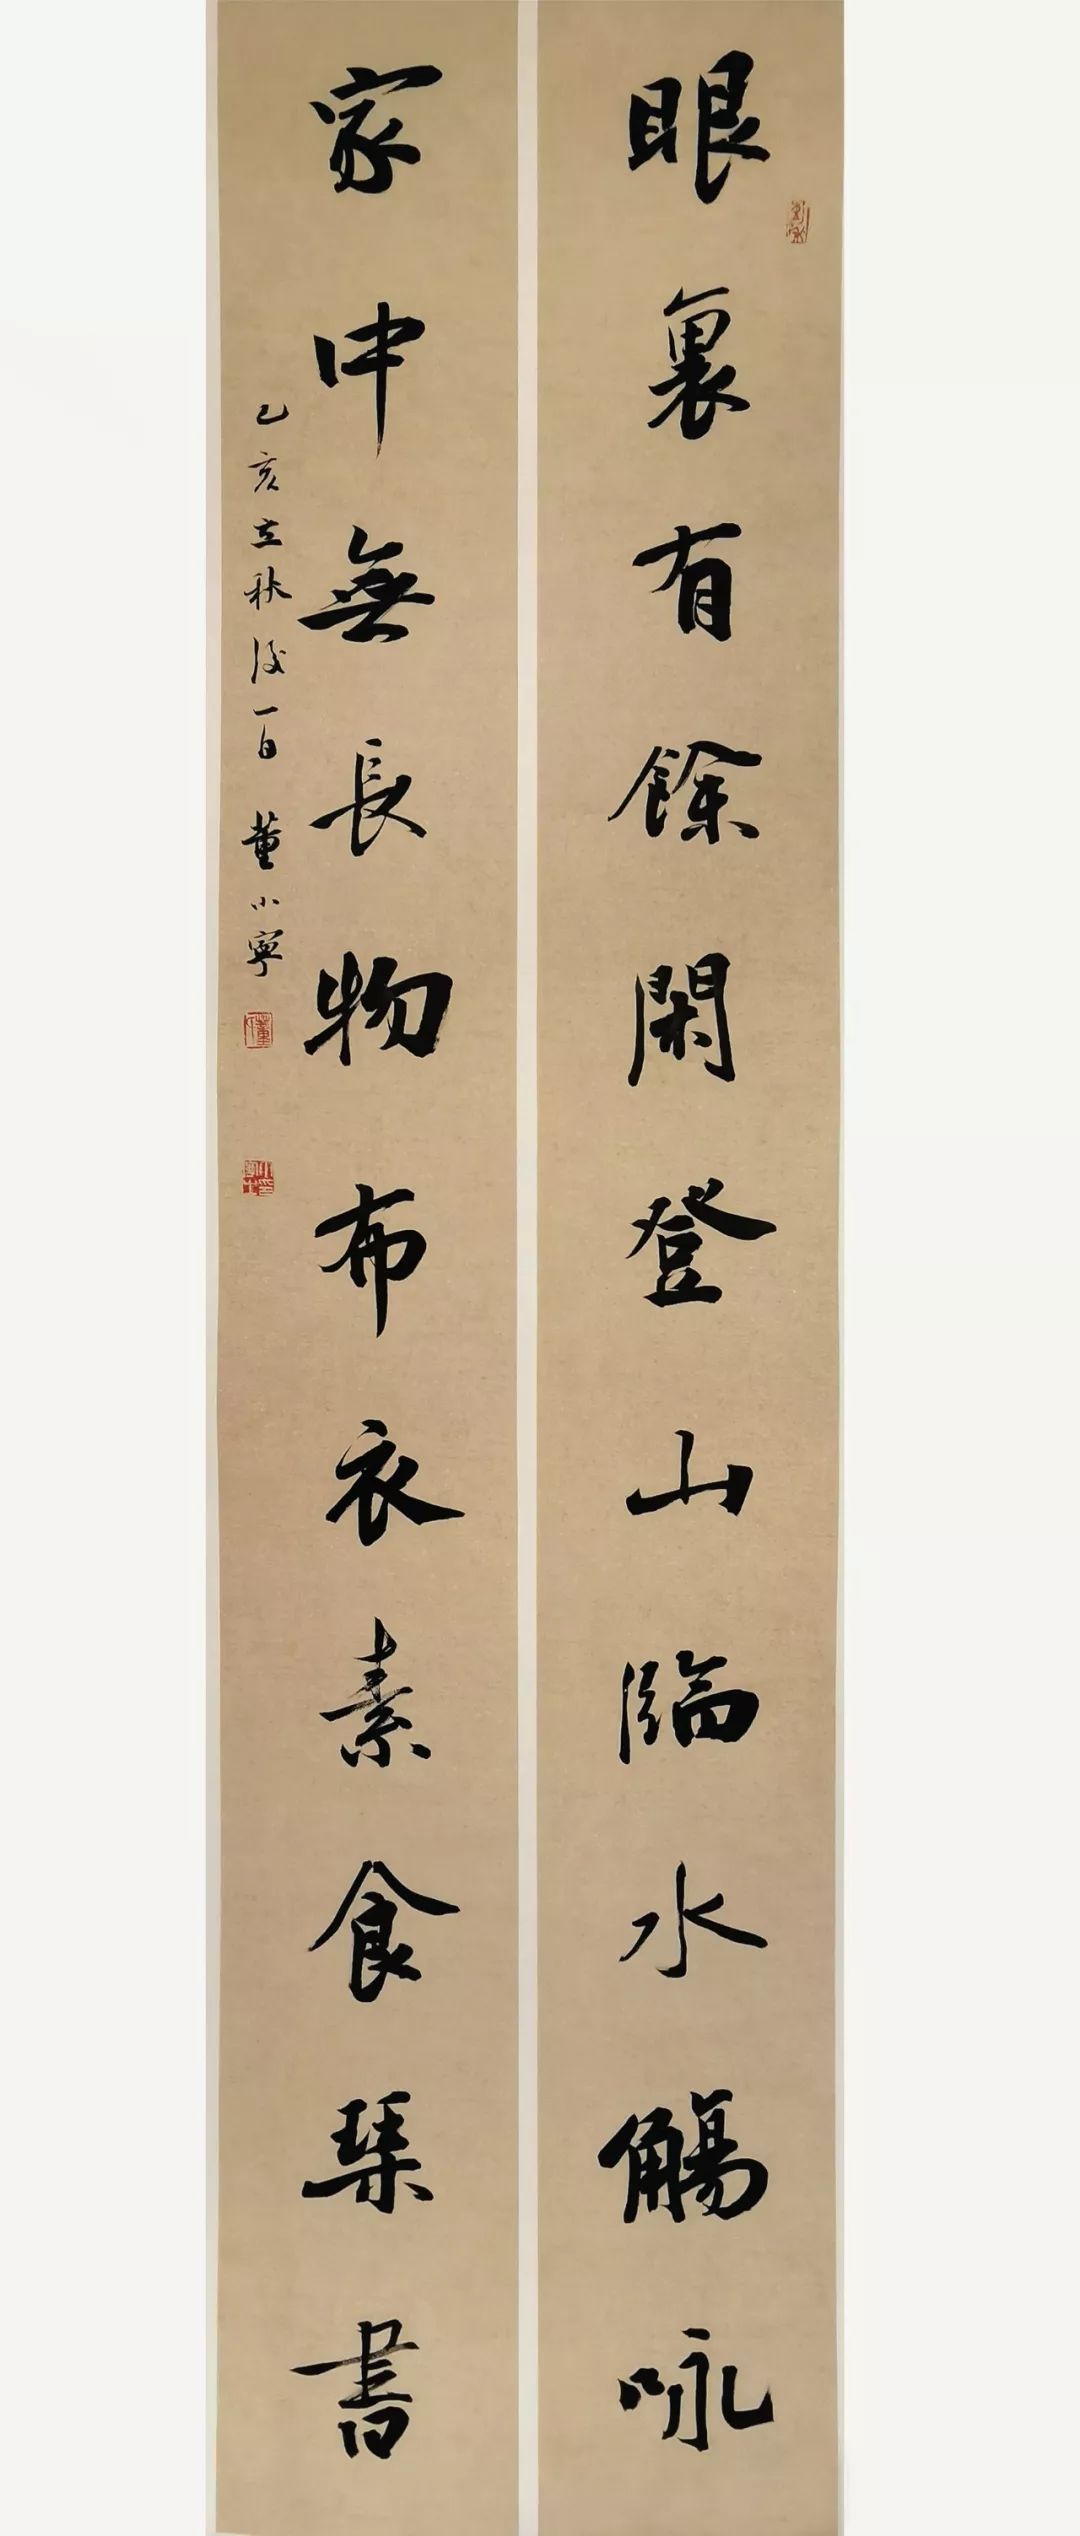 眼裏有餘閑登山臨水觴咏
家中無長物布衣素食琴書
己亥立秋後一日 董小寧